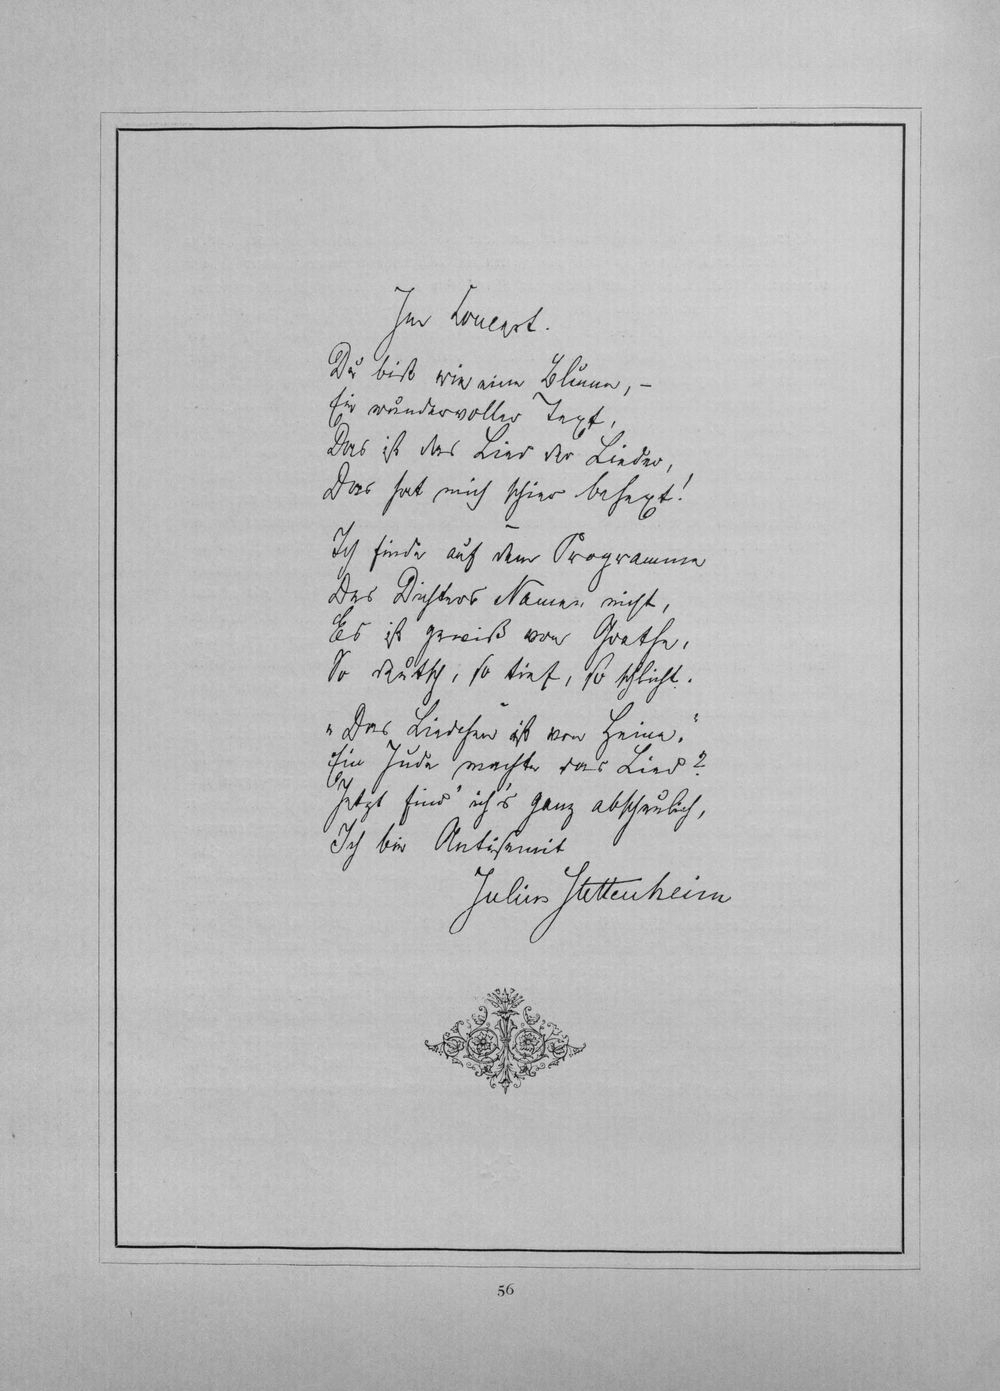 Im Concert.
Du bist wie eine Blume, –
Ein wundervoller Text,
Das ist das Lied der Lieder,
Das hat mich schier behext!
Ich finde auf dem Programme
Des Dichters Namen nicht,
Es ist gewiß von Goethe,
So deutsch, so tief, so schlicht.
„Das Liedchen ist von Heine.“
Ein Jude machte das Lied?
Jetzt find' ich's ganz abscheulich,
Ich bin Antisemit
Julius Stettenheim
56